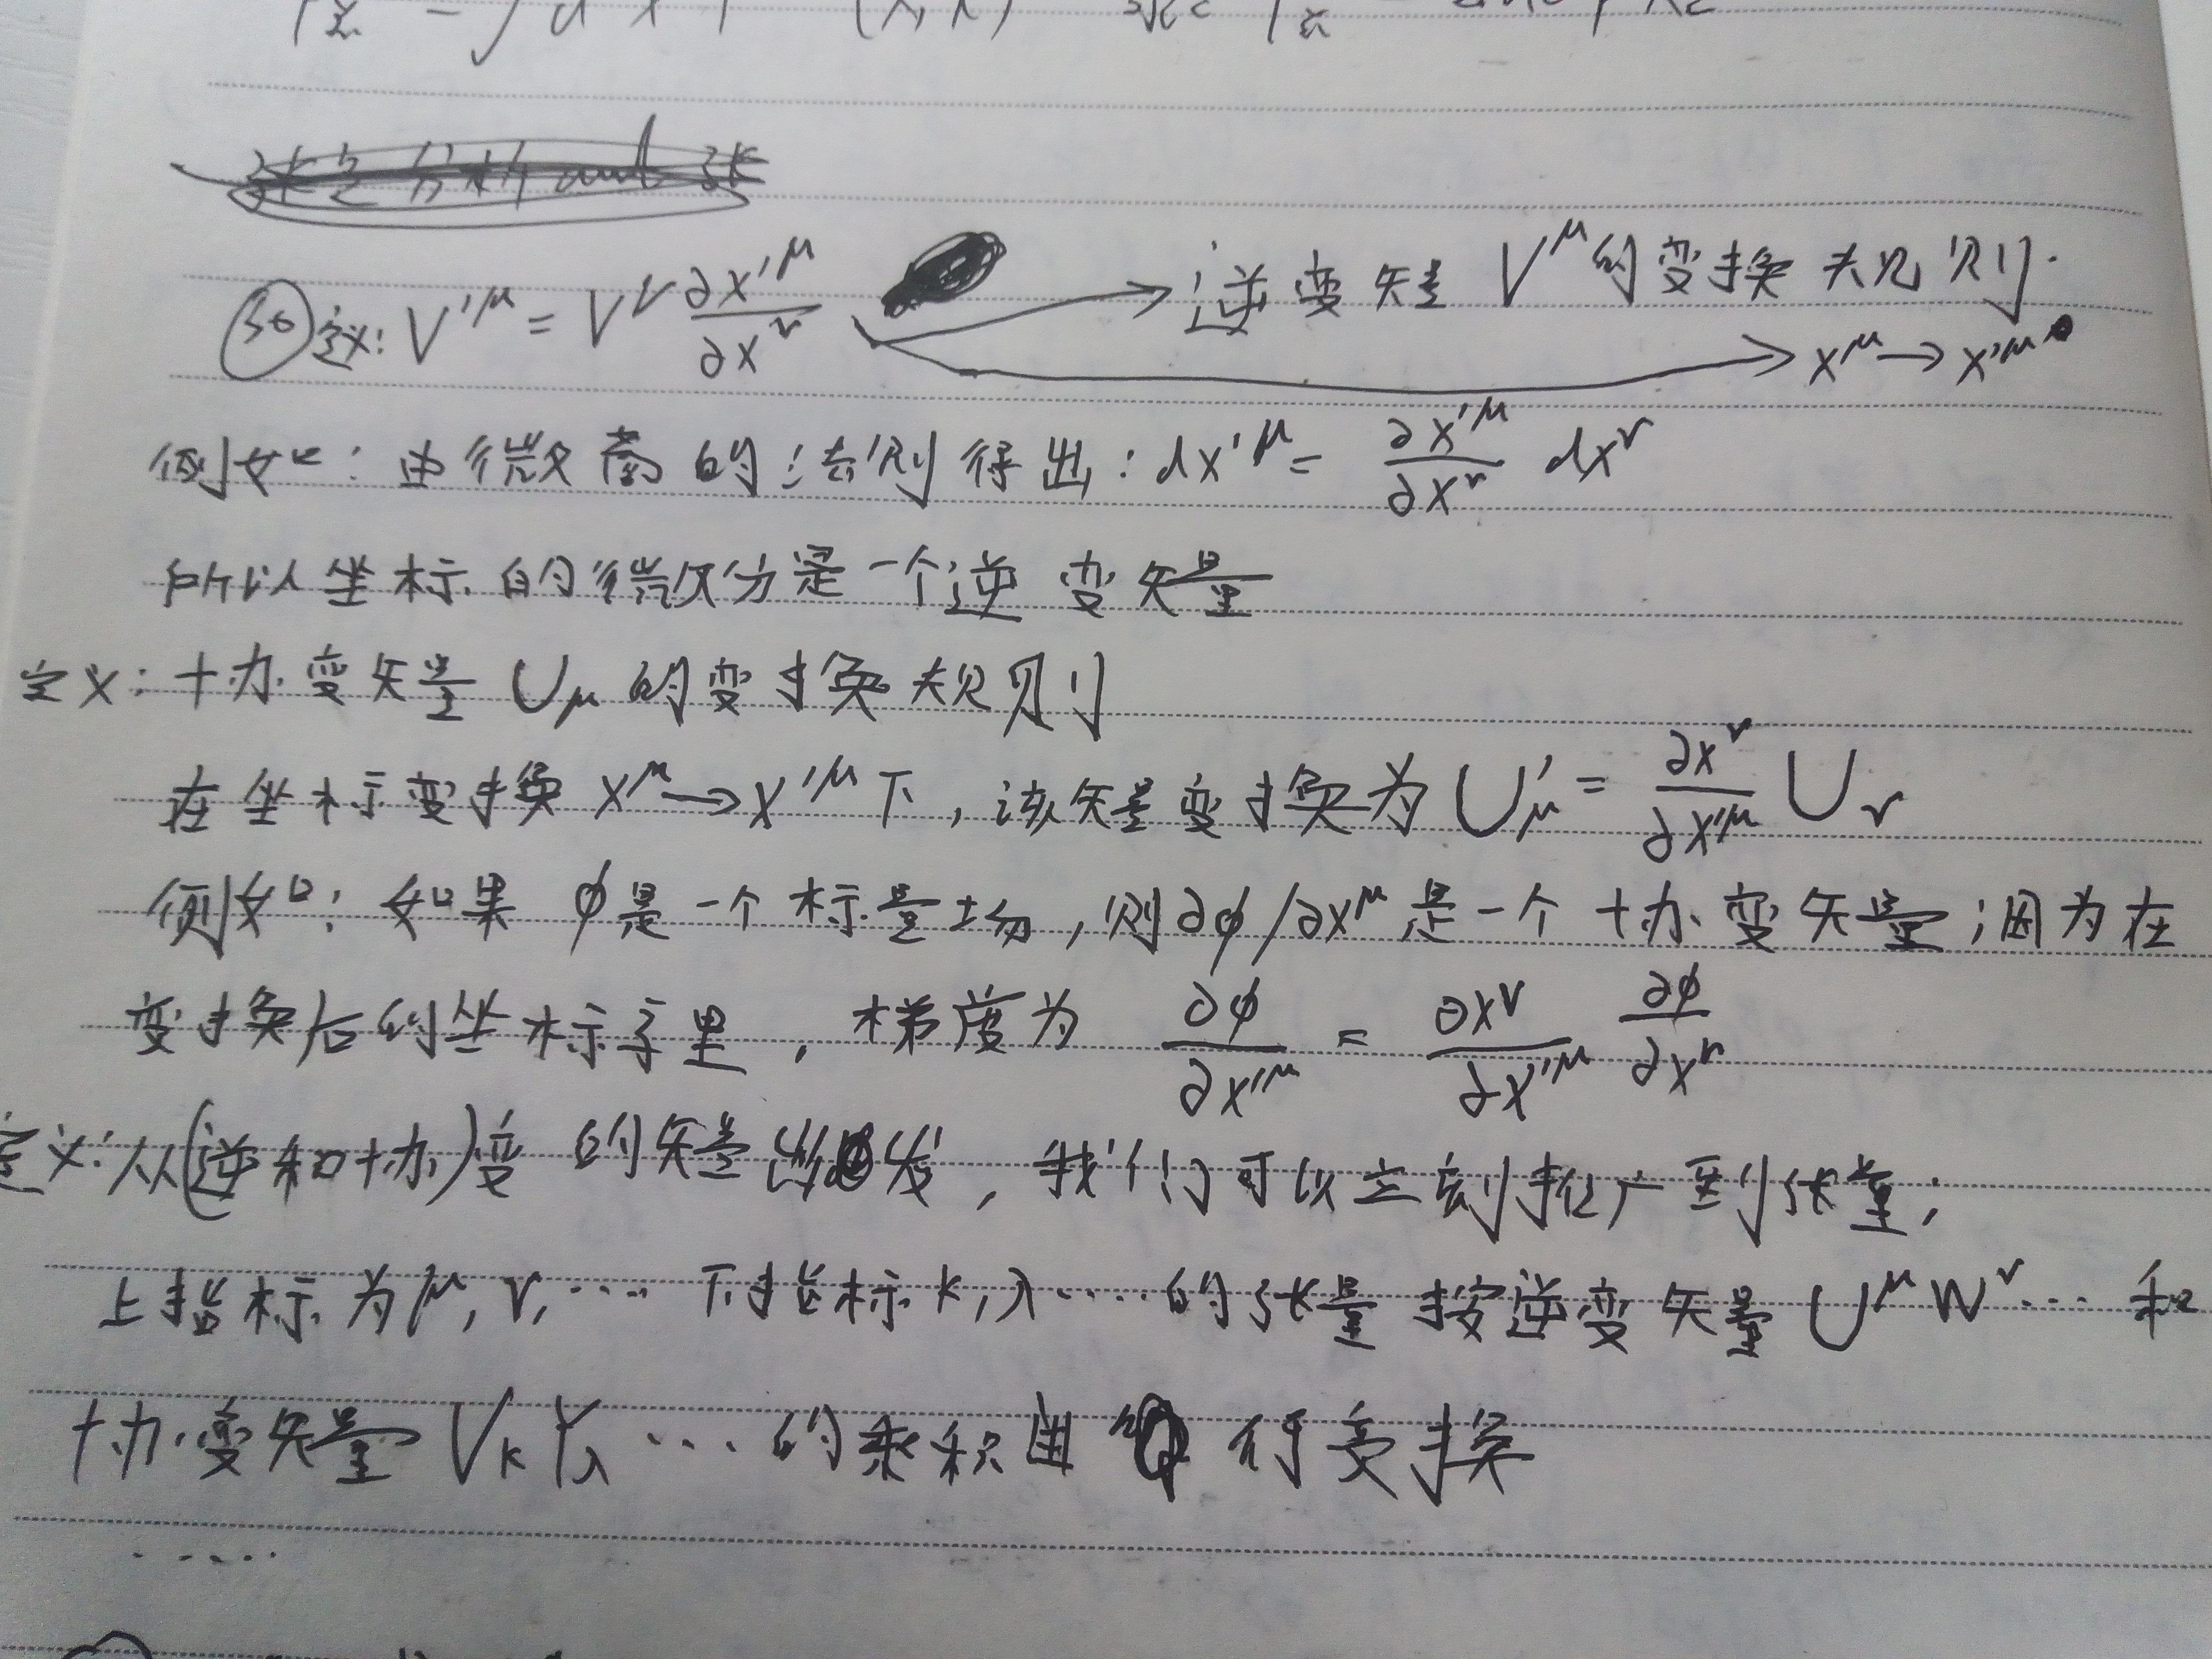 ㊱定义: V'^μ = V^ν ∂x'^μ/∂x^ν → 逆变矢量 V^μ的变换规则.
→ x^μ → x'^μ
例如: 由微商的法则得出: dx'^μ = ∂x'^μ/∂x^ν dx^ν
所以坐标的微分是一个逆变矢量
定义: 协变矢量 U_μ 的变换规则
在坐标变换 x^μ → x'^μ 下, 该矢量变换为 U'_μ = ∂x^ν/∂x'^μ U_ν
例如: 如果 φ是一个标量场, 则∂φ/∂x^μ 是一个协变矢量; 因为在
变换后的坐标系里, 梯度为 ∂φ/∂x'^μ = ∂x^ν/∂x'^μ ∂φ/∂x^ν
定义: 从(逆和协)变的矢量出发, 我们可以立刻推广到张量;
上指标为μ, ν, ···· 下指标 κ, λ ···· 的张量按逆变矢量 U^μ W^ν ··· 和
协变矢量 V_κ Y_λ ··· 的乘积进行变换
·····